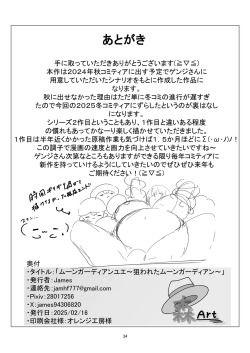 あとがき
手に取っていただきありがとうございます(≧▽≦)
本作は2024年秋コミティアに出す予定でゲンジさんに
用意していただいたシナリオをもとに作成した作品に
なります。
秋に出せなかった理由はただ単に冬コミの進行が遅すぎ
たので今回の2025冬コミティアにずらしたというのが裏はなし
になります。
シリーズ2作目ということもあり、1作目と違いある程度
の慣れもあってかなーり楽しく描かせていただきました。
1作目は半年近くかかった原稿作業も気づけば1.5か月ほどにΣ(・ω・ノ)ノ!
この調子で漫画の速度と画力を向上させていきたいですね～
ゲンジさん次第なところもありますができる限り毎年コミティアに
新作を持っていけるようにしていきたいのでぜひぜひ来年も
ご期待ください!(≧▽≦)
奥付
・タイトル:「ムーンガーディアンユエ～狙われたムーンガーディアン～」
・発行者:James
・連絡先:jamhf777@gmail.com
・Pixiv:28017256
・X:james94306820
・発行日:2025/02/16
・印刷会社様:オレンジ工房様
森Art
24